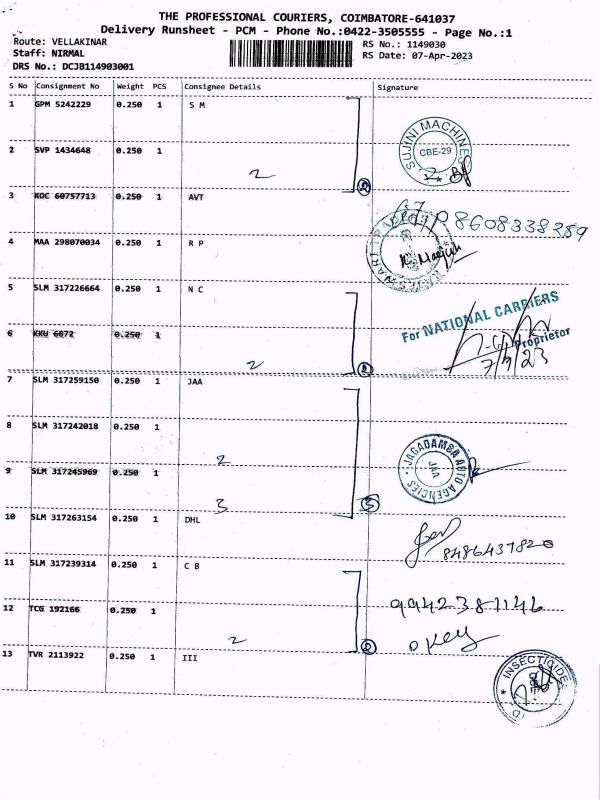 THE PROFESSIONAL COURIERS, COIMBATORE-641037
Delivery Runsheet - PCM - Phone No.:0422-3505555 - Page No.:1
Route: VELLAKINAR
RS No.: 1149030
Staff: NIRMAL
RS Date: 07-Apr-2023
DRS No.: DCJB114903001
S No Consignment No Weight PCS Consignee Details Signature
1 GPM 5242229 0.250 1 S M
SUJINI MACHINES
CBE-29
2 SVP 1434648 0.250 1
2
2
3 KOC 60757713 0.250 1 AVT
8608338289
4 MAA 298070034 0.250 1 R P
5 SLM 317226664 0.250 1 N C
For NATIONAL CARRIERS
Proprietor
6 KKU 6872 0.250 1
2
2
7 SLM 317259150 0.250 1 JAA
8 SLM 317242018 0.250 1
2
JAGADAMBA AUTO AGENCIES
JAA
9 SLM 317245969 0.250 1
3
3
10 SLM 317263154 0.250 1 DHL
8486437820
11 SLM 317239314 0.250 1 C B
9942381146
12 TCG 192166 0.250 1
2
2
okey
13 TVR 2113922 0.250 1 III